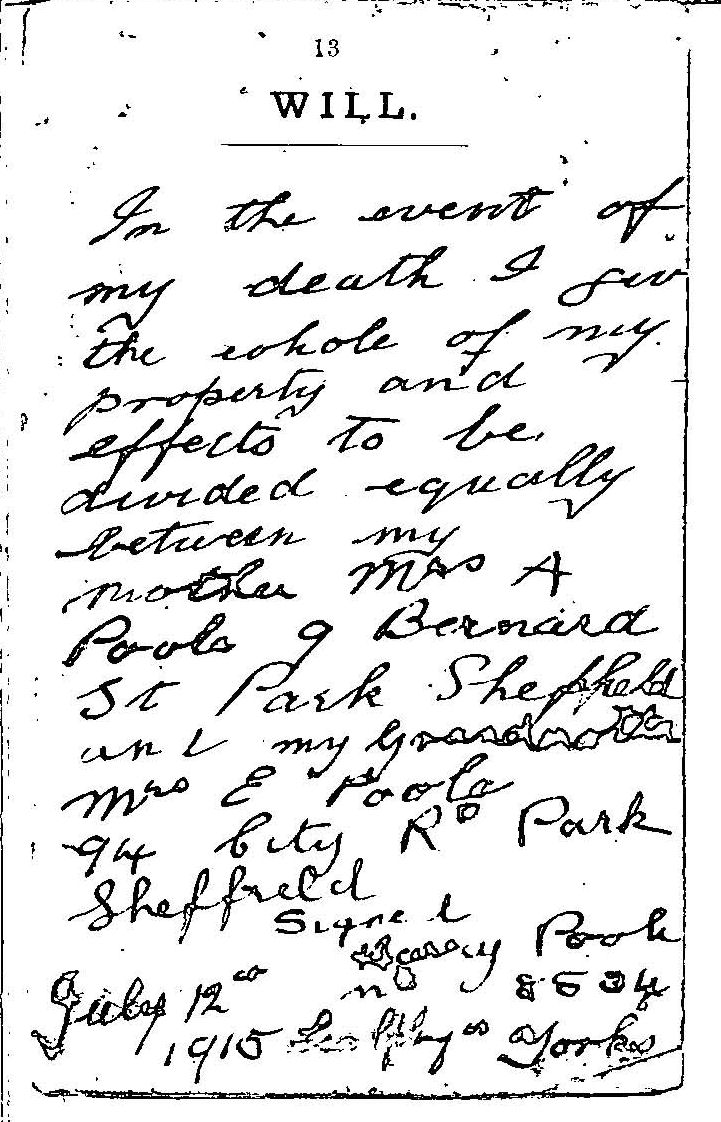 13
WILL.
In the event of
my death I giv
the whole of my
property and
effects to be
divided equally
between my
mother Mrs A
Poole 9 Bernard
St Park Sheffield
and my Grandmother
Mrs E Poole
94 City Rd Park
Sheffield
Signed
Poole
July 12th no 8534
1915 Yorks